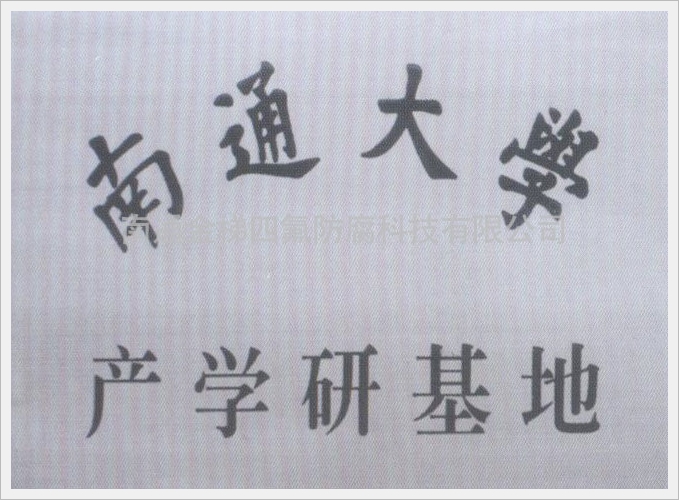 南通大學
四氟防腐科技有限公司
产学研基地